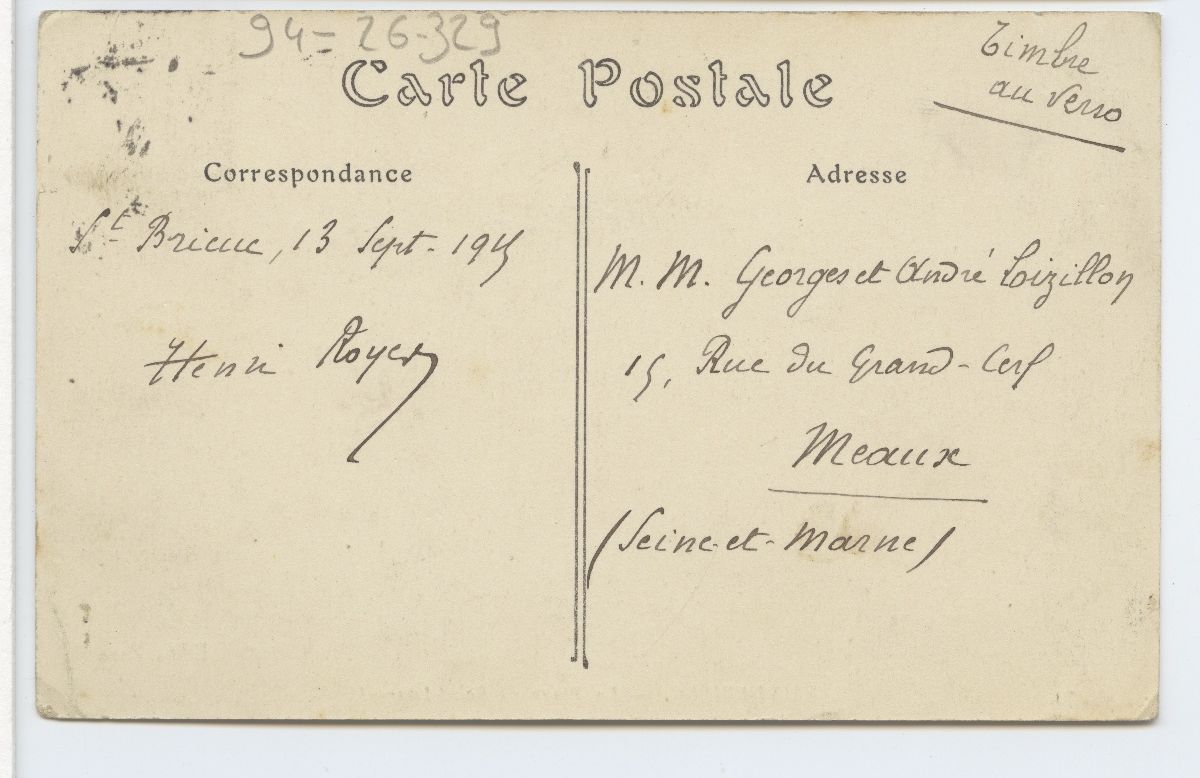 94-26-329
Carte Postale
Timbre
au verso
Correspondance
St Brieuc, 13 Sept. 1915
Henri Royer
Adresse
M. M. Georges et André Loizillon
15, Rue du Grand-Cerf
Meaux
(Seine-et-Marne)